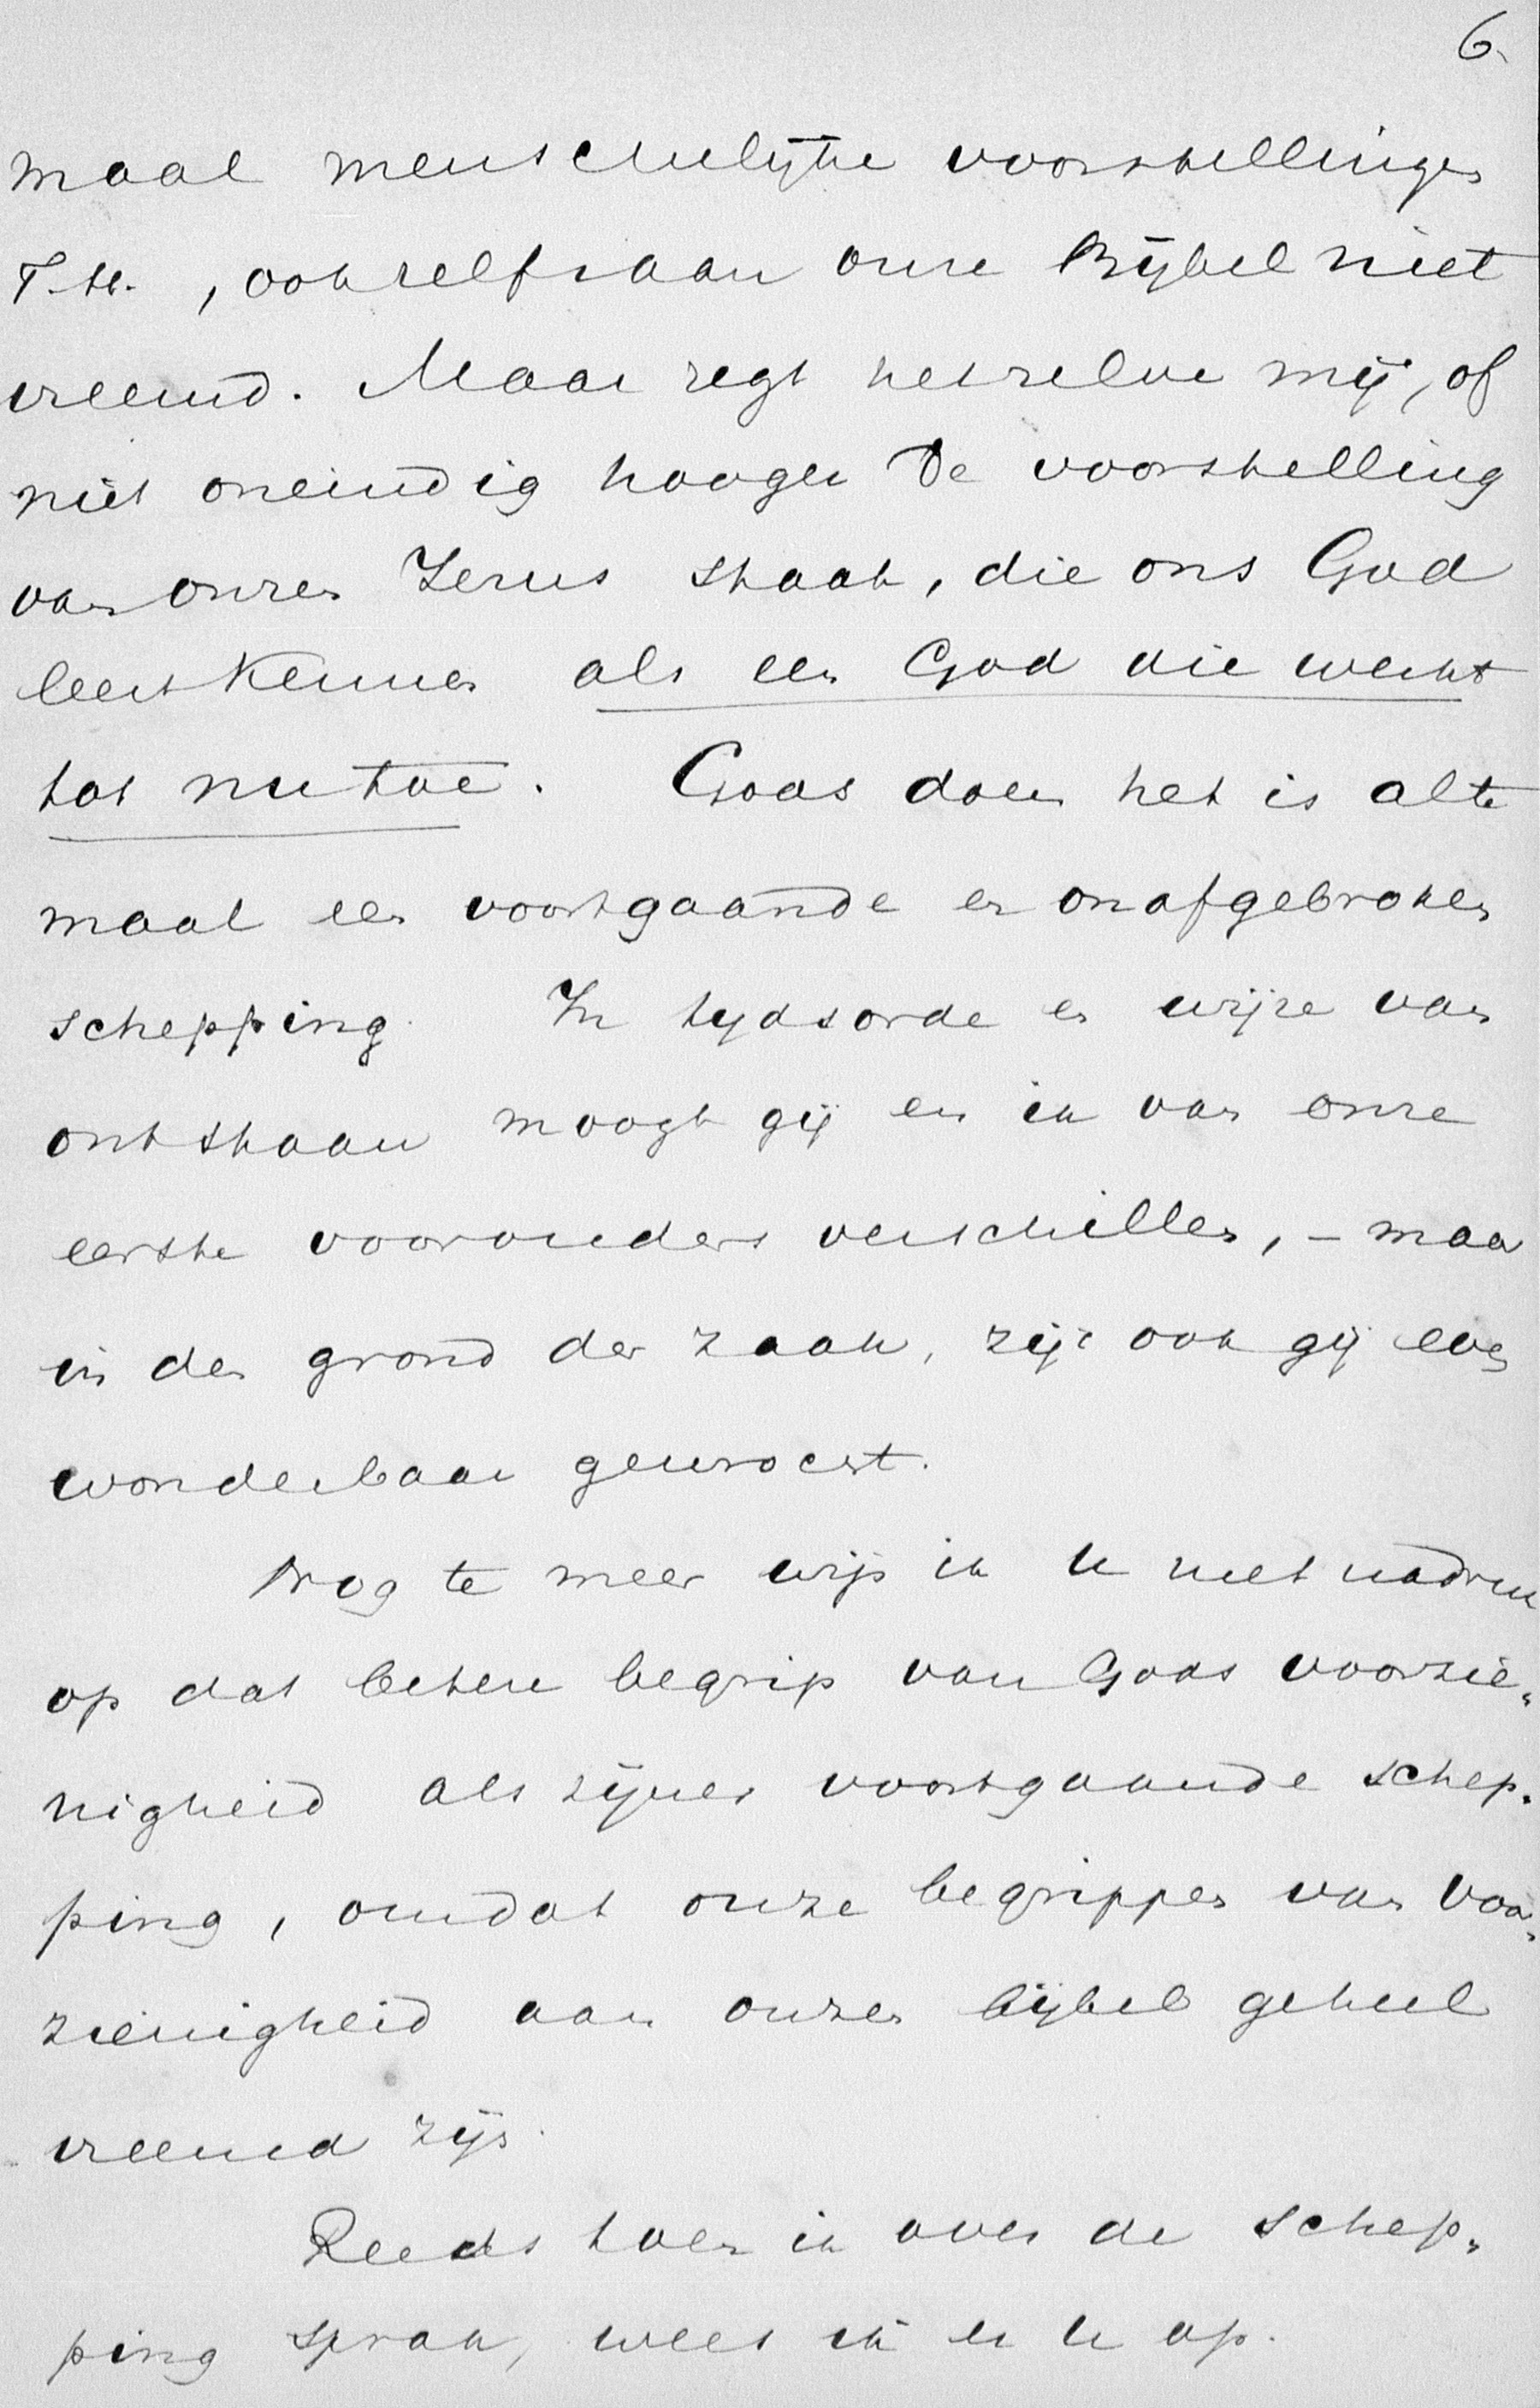 6.
maal menschelijke voorstellingen
T.H., ook zelfs aan onze Bijbel niet
vreemd. Maar zegt hetzelve mij, of
niet oneindig hooger de voorstelling
van onzen Jezus staat, die ons God
leert kennen als een God die werkt
tot nu toe. Gods doen het is alte
maal een voortgaande en onafgebroken
schepping. In tydsorde en wijze van
ontstaan moogt gij en ik van onze
eerste voorouders verschillen, – maar
in den grond der zaak, zijt ook gij even
wonderbaar gewrocht.
Nog te meer wijs ik U met nadruk
op dat betere begrip van Gods voorzie„
nigheid als zijner voortgaande schep„
ping, omdat onze begrippen van voor„
zienigheid aan onzen bijbel geheel
vreemd zijn.
Reeds toen ik over de schep„
ping sprak, wees ik er U op.